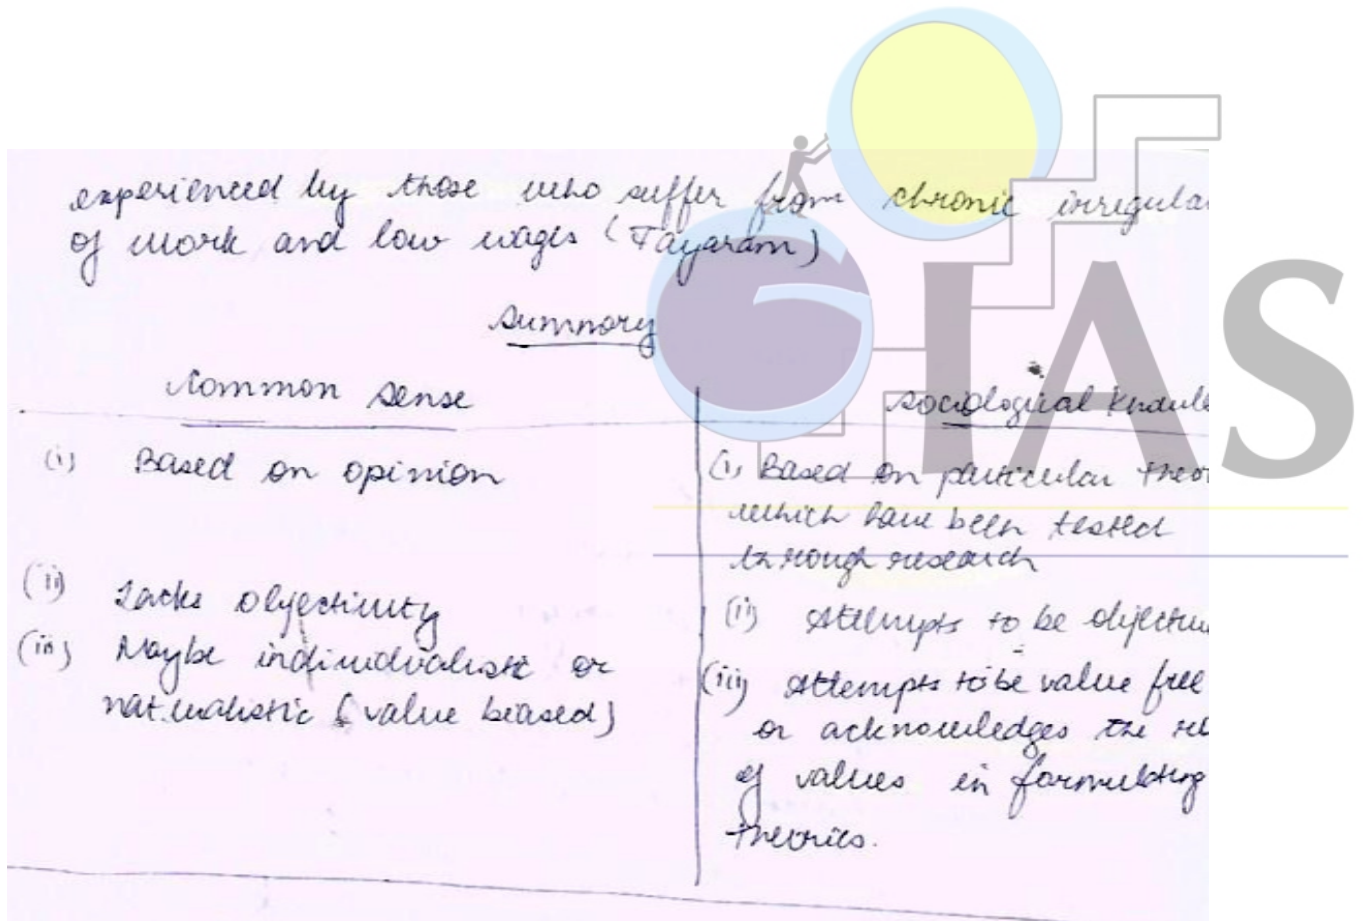 experienced by those who suffer from chronic irregula
of work and low wages (Tayaram)
Summary
Common Sense
Sociological Knowle
(i) Based on opinion
(i) Based on particular theor
which have been tested
through research
(ii) Lacks objectivity
(iii) Maybe individualistic or
naturalistic (value biased)
(ii) Attempts to be objectiv
(iii) Attempts to be value free
or acknowledges the
of values in formulating
theories.
GIAS